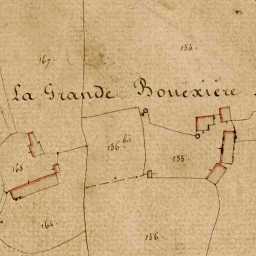 167
154
La Grande Bouexière
156 bis
155
165
164
156